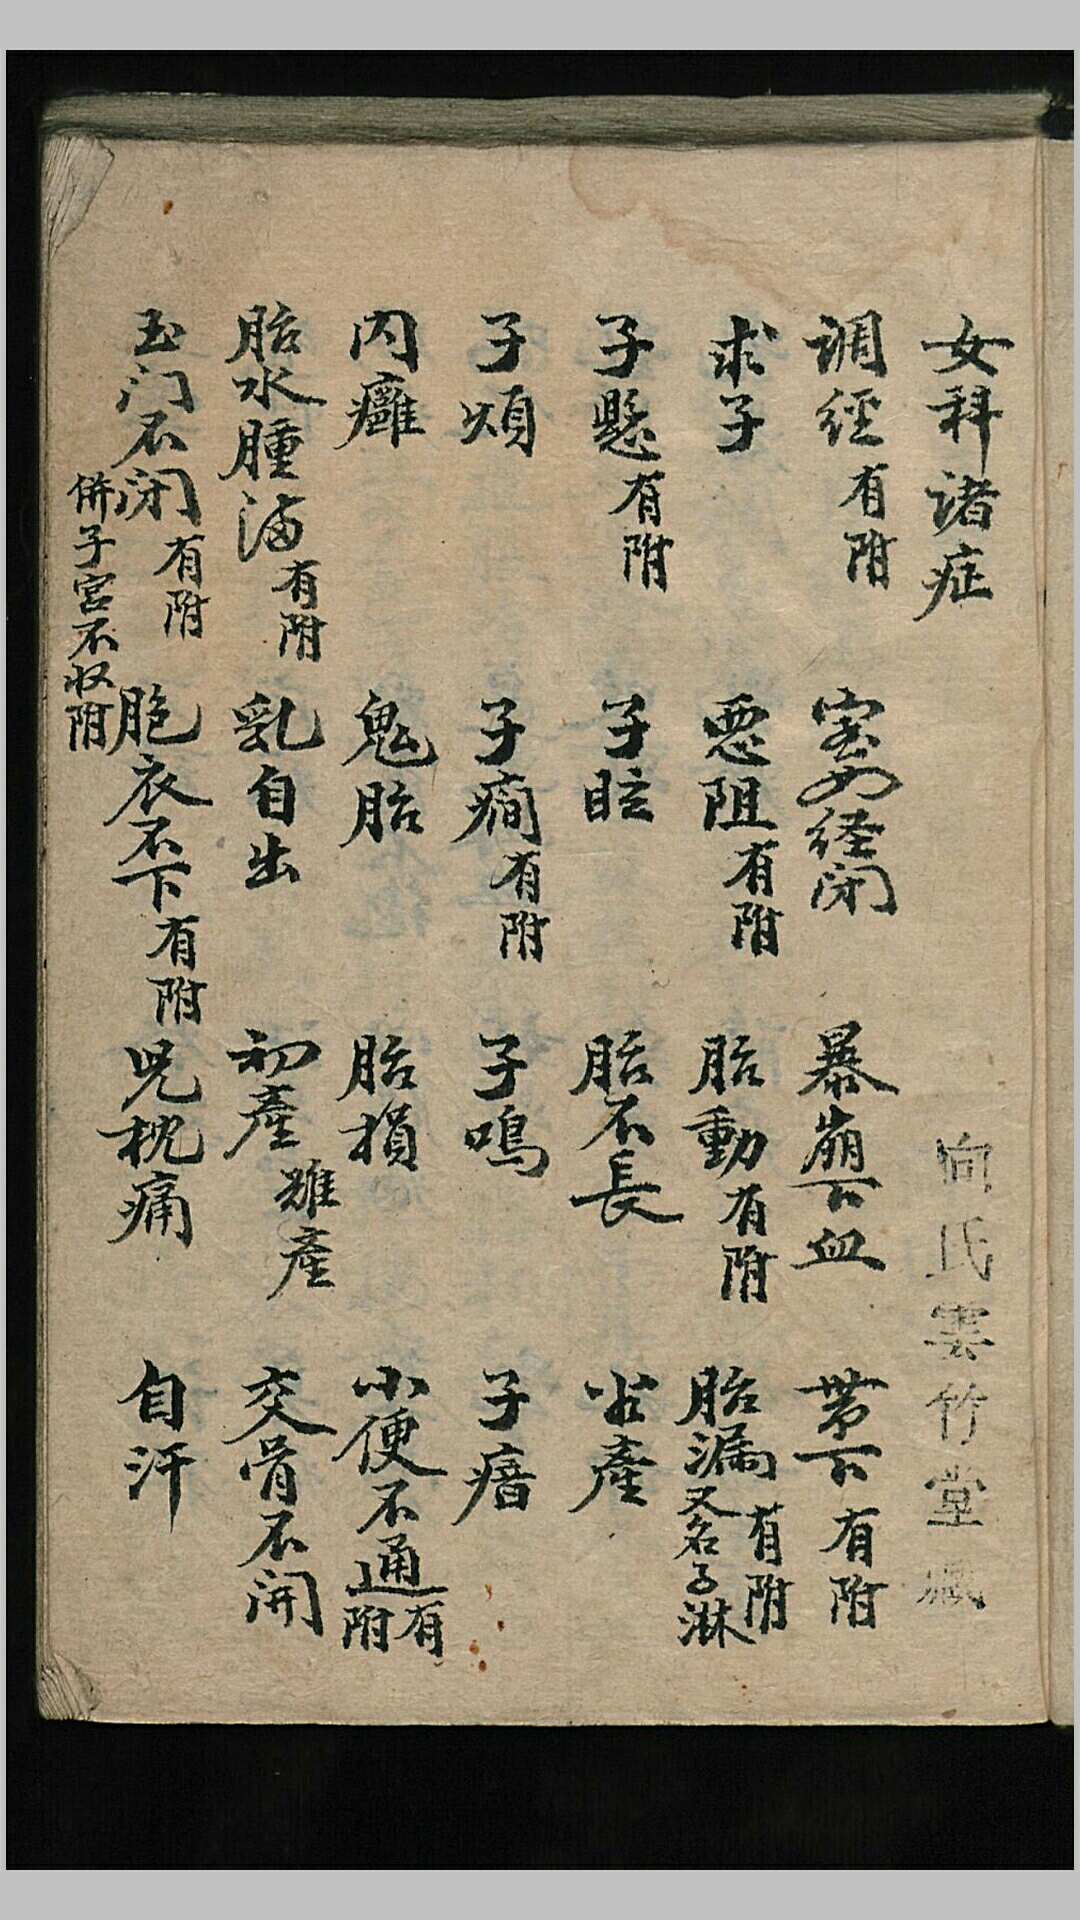 女科诸症 向氏雲竹堂藏
调經有附 室女经闭 暴崩下血 帶下有附
求子 恶阻有附 胎動有附 胎漏有附又名子淋
子懸有附 子眩 胎不長 半產
子煩 子癎有附 子鳴 子瘖
内癰 鬼胎 胎損 小便不通有附
胎水腫满有附 乳自出 初產難產 交骨不開
玉门不闭有附 胞衣不下有附 児枕痛 自汗
併子宫不収附